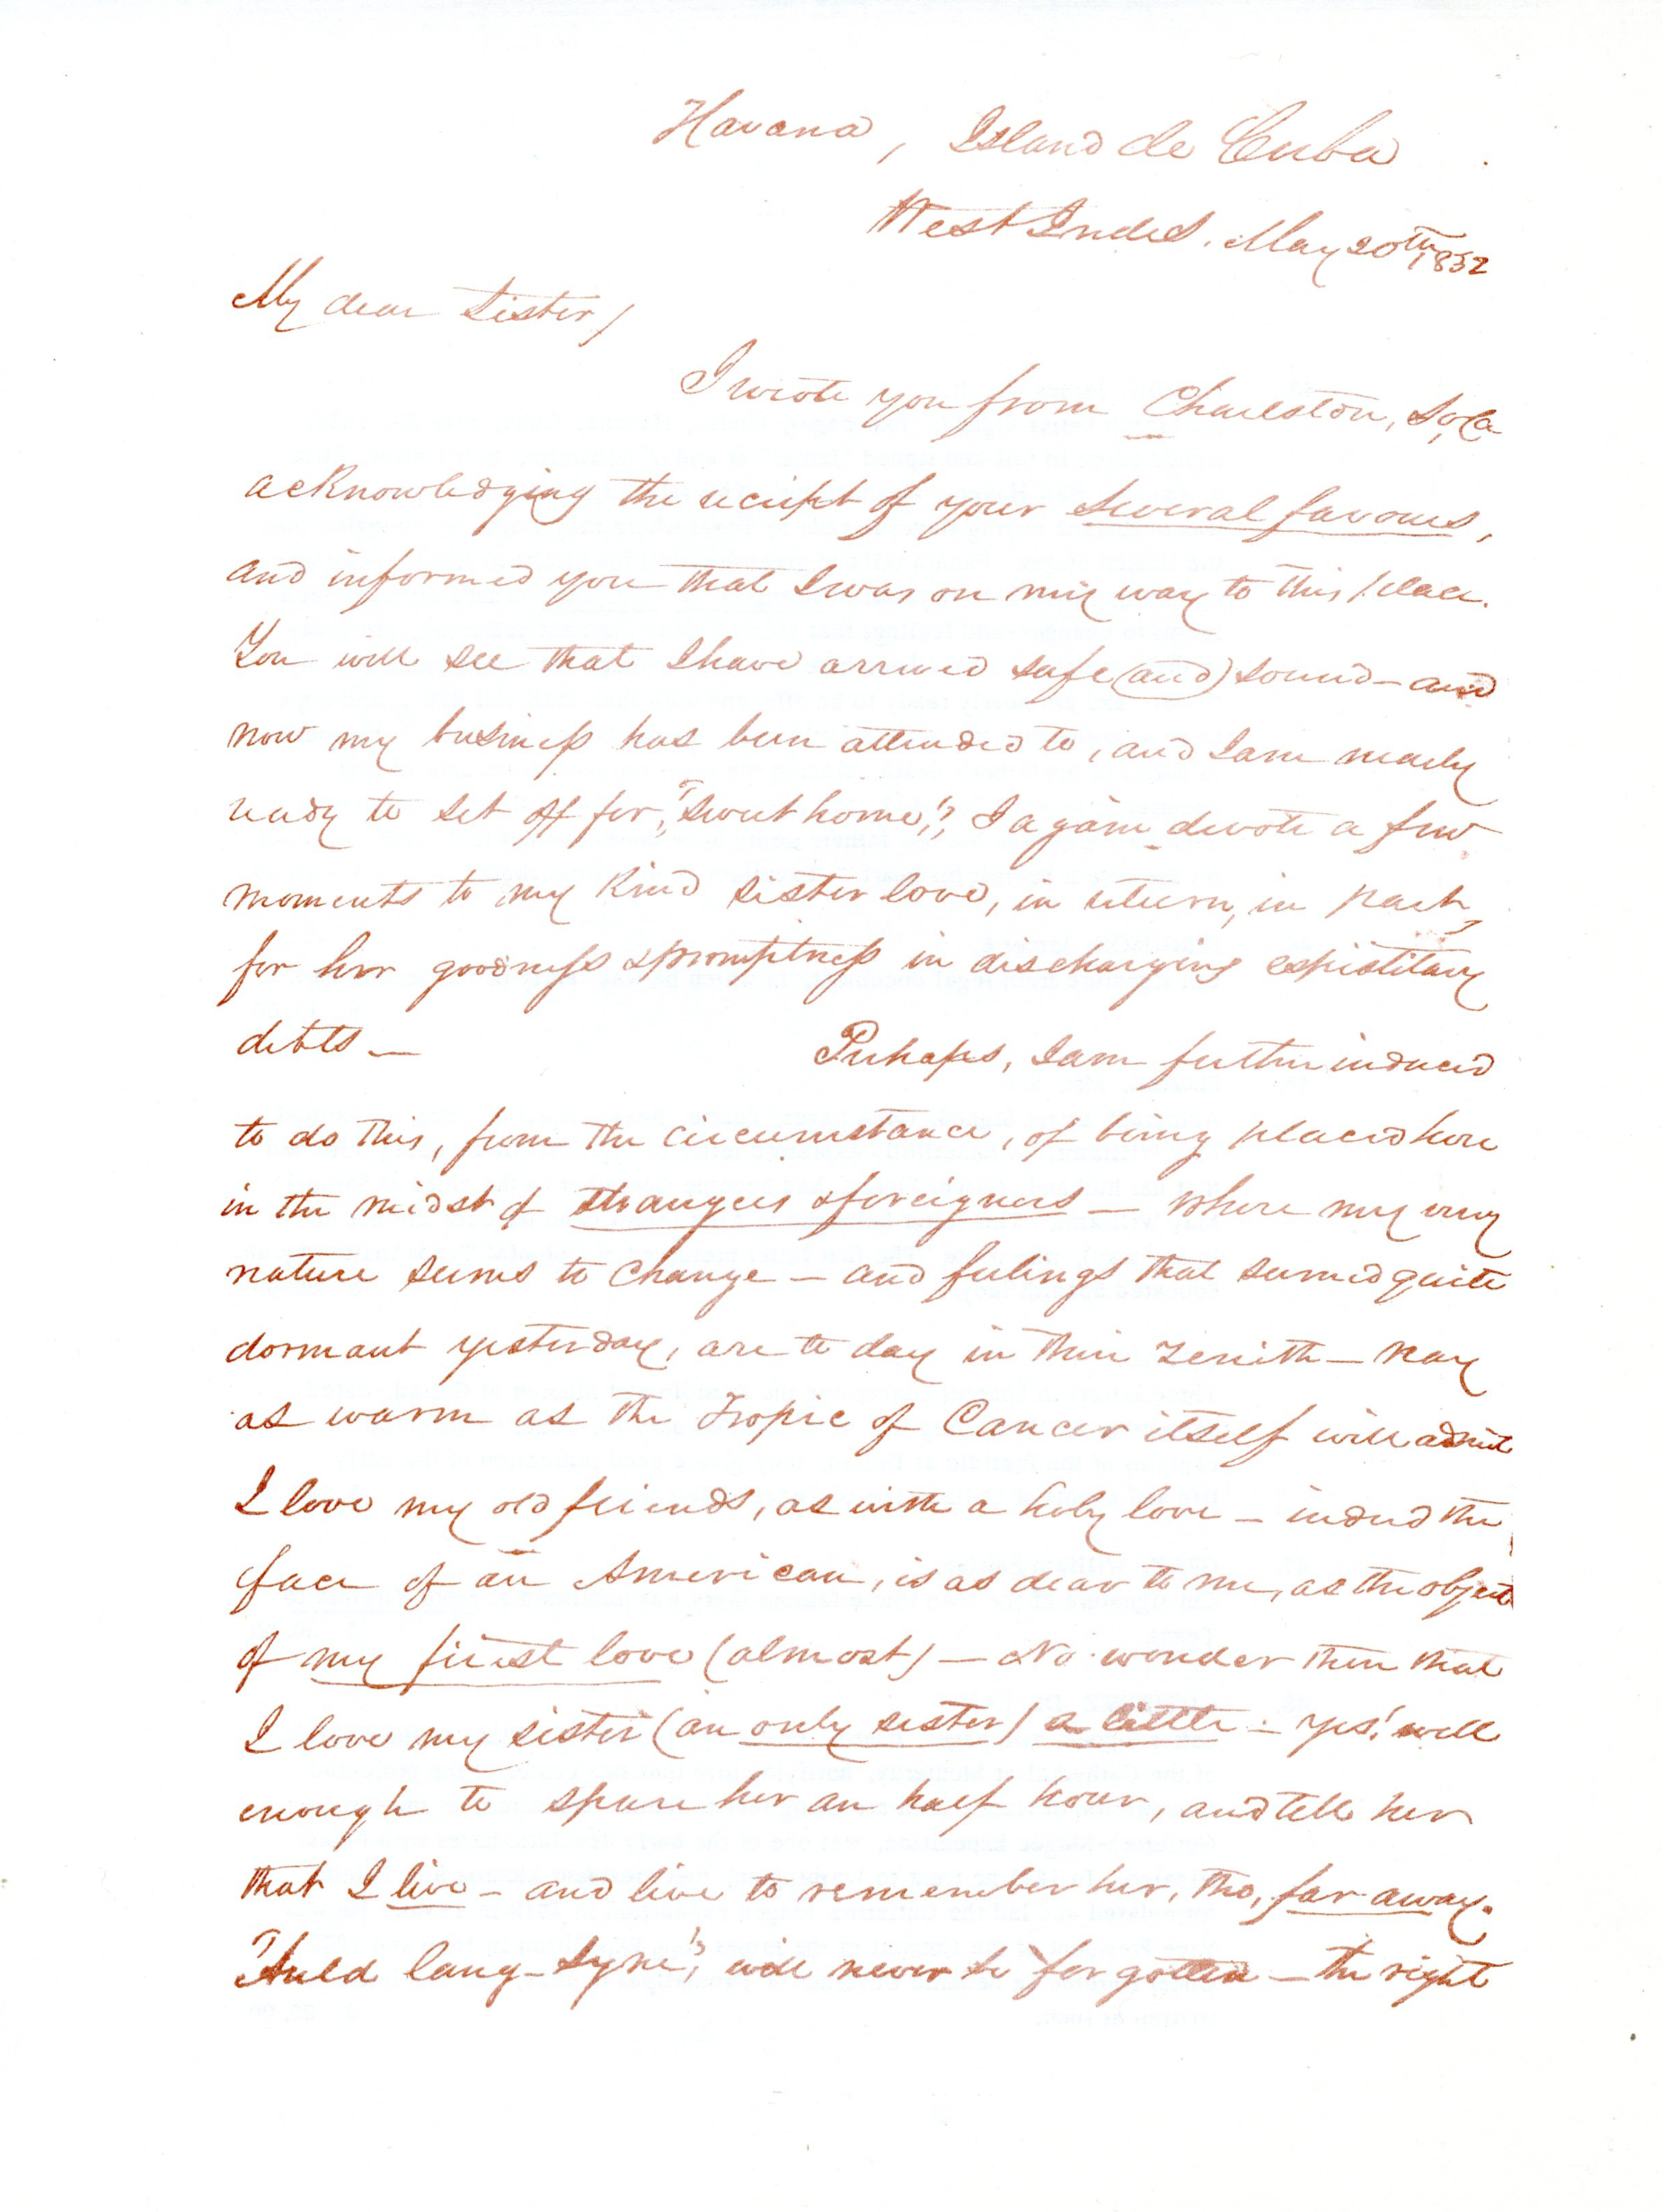 Havana, Island de Cuba
West Indies. May 20th 1832
My dear Sister,
I wrote you from Charleston, So, Ca
acknowledging the reciept of your several favours,
and informed you that I was on my way to this place.
You will see that I have arrived safe (and) sound - and
now my business has been attended to, and I am nearly
ready to set off for, "sweet home," I again devote a few
moments to my kind sister love, in return, in part,
for her goodness & promptness in discharging espistitary
debts - Perhaps, I am further induced
to do this, from the circumstance, of being placed here
in the midst of strangers & foreigners - where my very
nature seems to change - and feelings that seemed quite
dormant yesterday, are to day in their zenith - nay
as warm as the Tropic of Cancer itself will admit
I love my old friends, as with a holy love - indeed the
face of an American, is as dear to me, as the object
of my first love (almost) - No wonder then that
I love my sister (an only sister) a little - yes! well
enough to spare her an half hour, and tell her
that I live - and live to remember her, tho, far away.
"Auld lang-Syne", will never be forgotten - the right